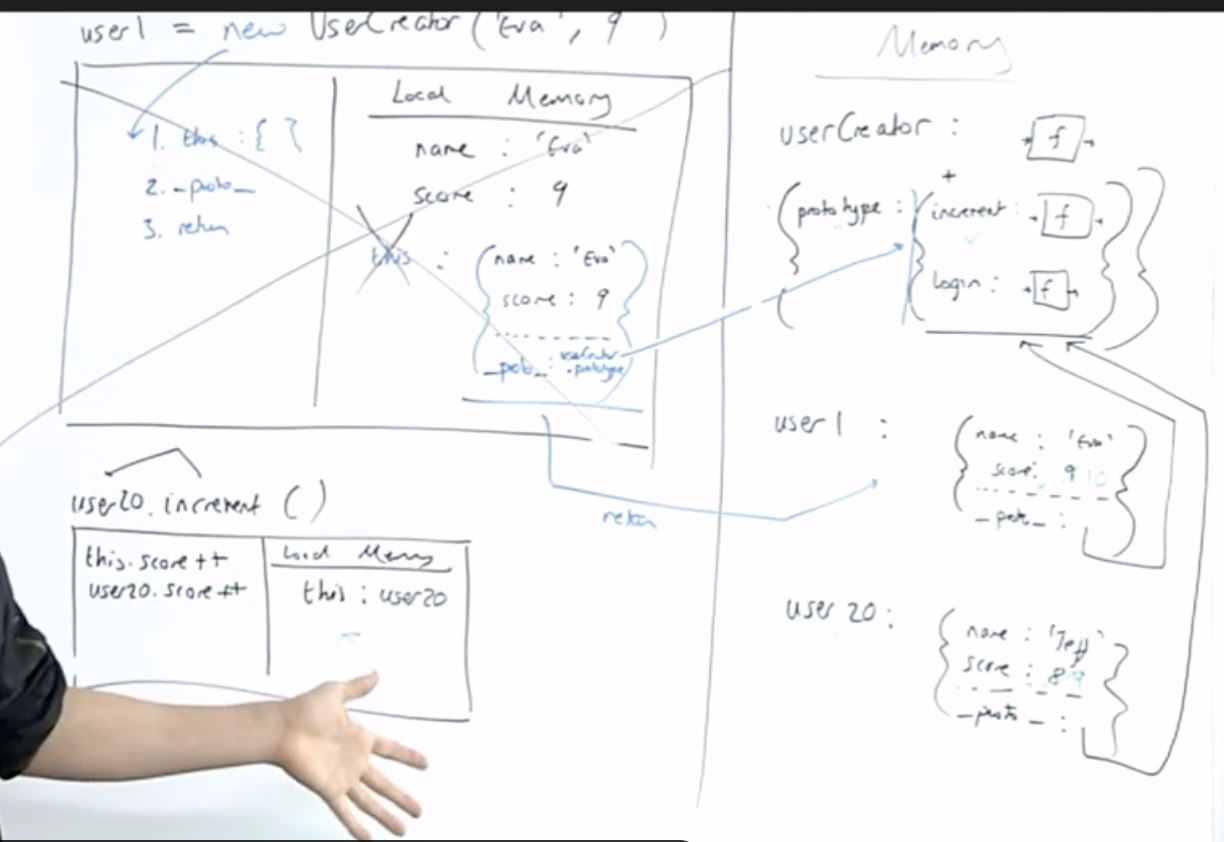 user1 = new UserCreator('Eva', 9)
1. this : { }
2. _proto_
3. return
Local Memory
name : 'Eva'
score : 9
this :
name : 'Eva'
score : 9
_proto_ : userCreator
.prototype
return
user20.increment ()
this.score++
user20.score++
Local Memory
this : user20
Memory
userCreator : f
+
prototype : increment : f
login : f
user1 :
name : 'Eva'
score: 9 10
_proto_ :
user20 :
name : 'Jeff'
score : 8 9
_proto_ :